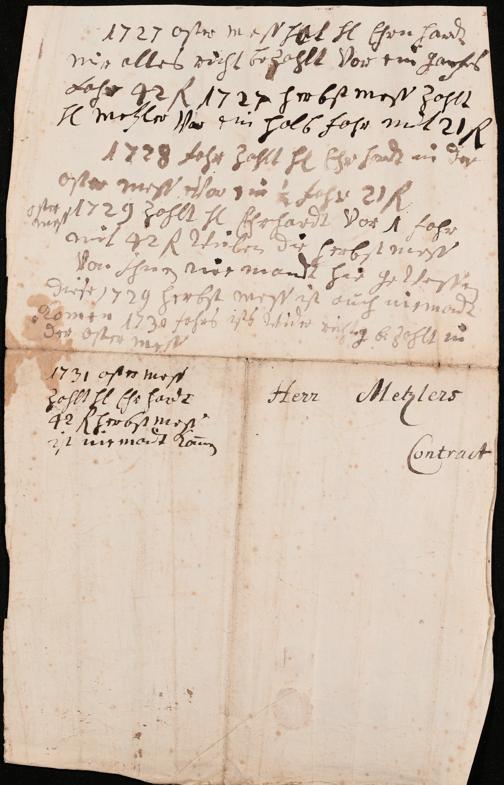 1727 oster mess hat H Ehrhardt
mir alles richt bezahlt Vor ein ganzes
Jahr 42 R 1727 herbst mess zahlt
H Metzler Vor ein halb Jahr mit 21 R
1728 Jahr zahlt H Ehrhardt in der
oster mess Vor ein ½ Jahr 21 R
oster mess 1729 zahlt H Ehrhardt Vor 1 Jahr
mit 42 R die herbst mess
Von Ihnen niemandt hie gewessen
diese 1729 herbst mess ist auch niemadt
komen 1730 Jahrs ists wider richtig bezahlt in
der oster mess
1731 oster mess
zahlt H Ehrhardt
42 R herbst mess
ist niemadt kom̄
Herr Metzlers
Contract